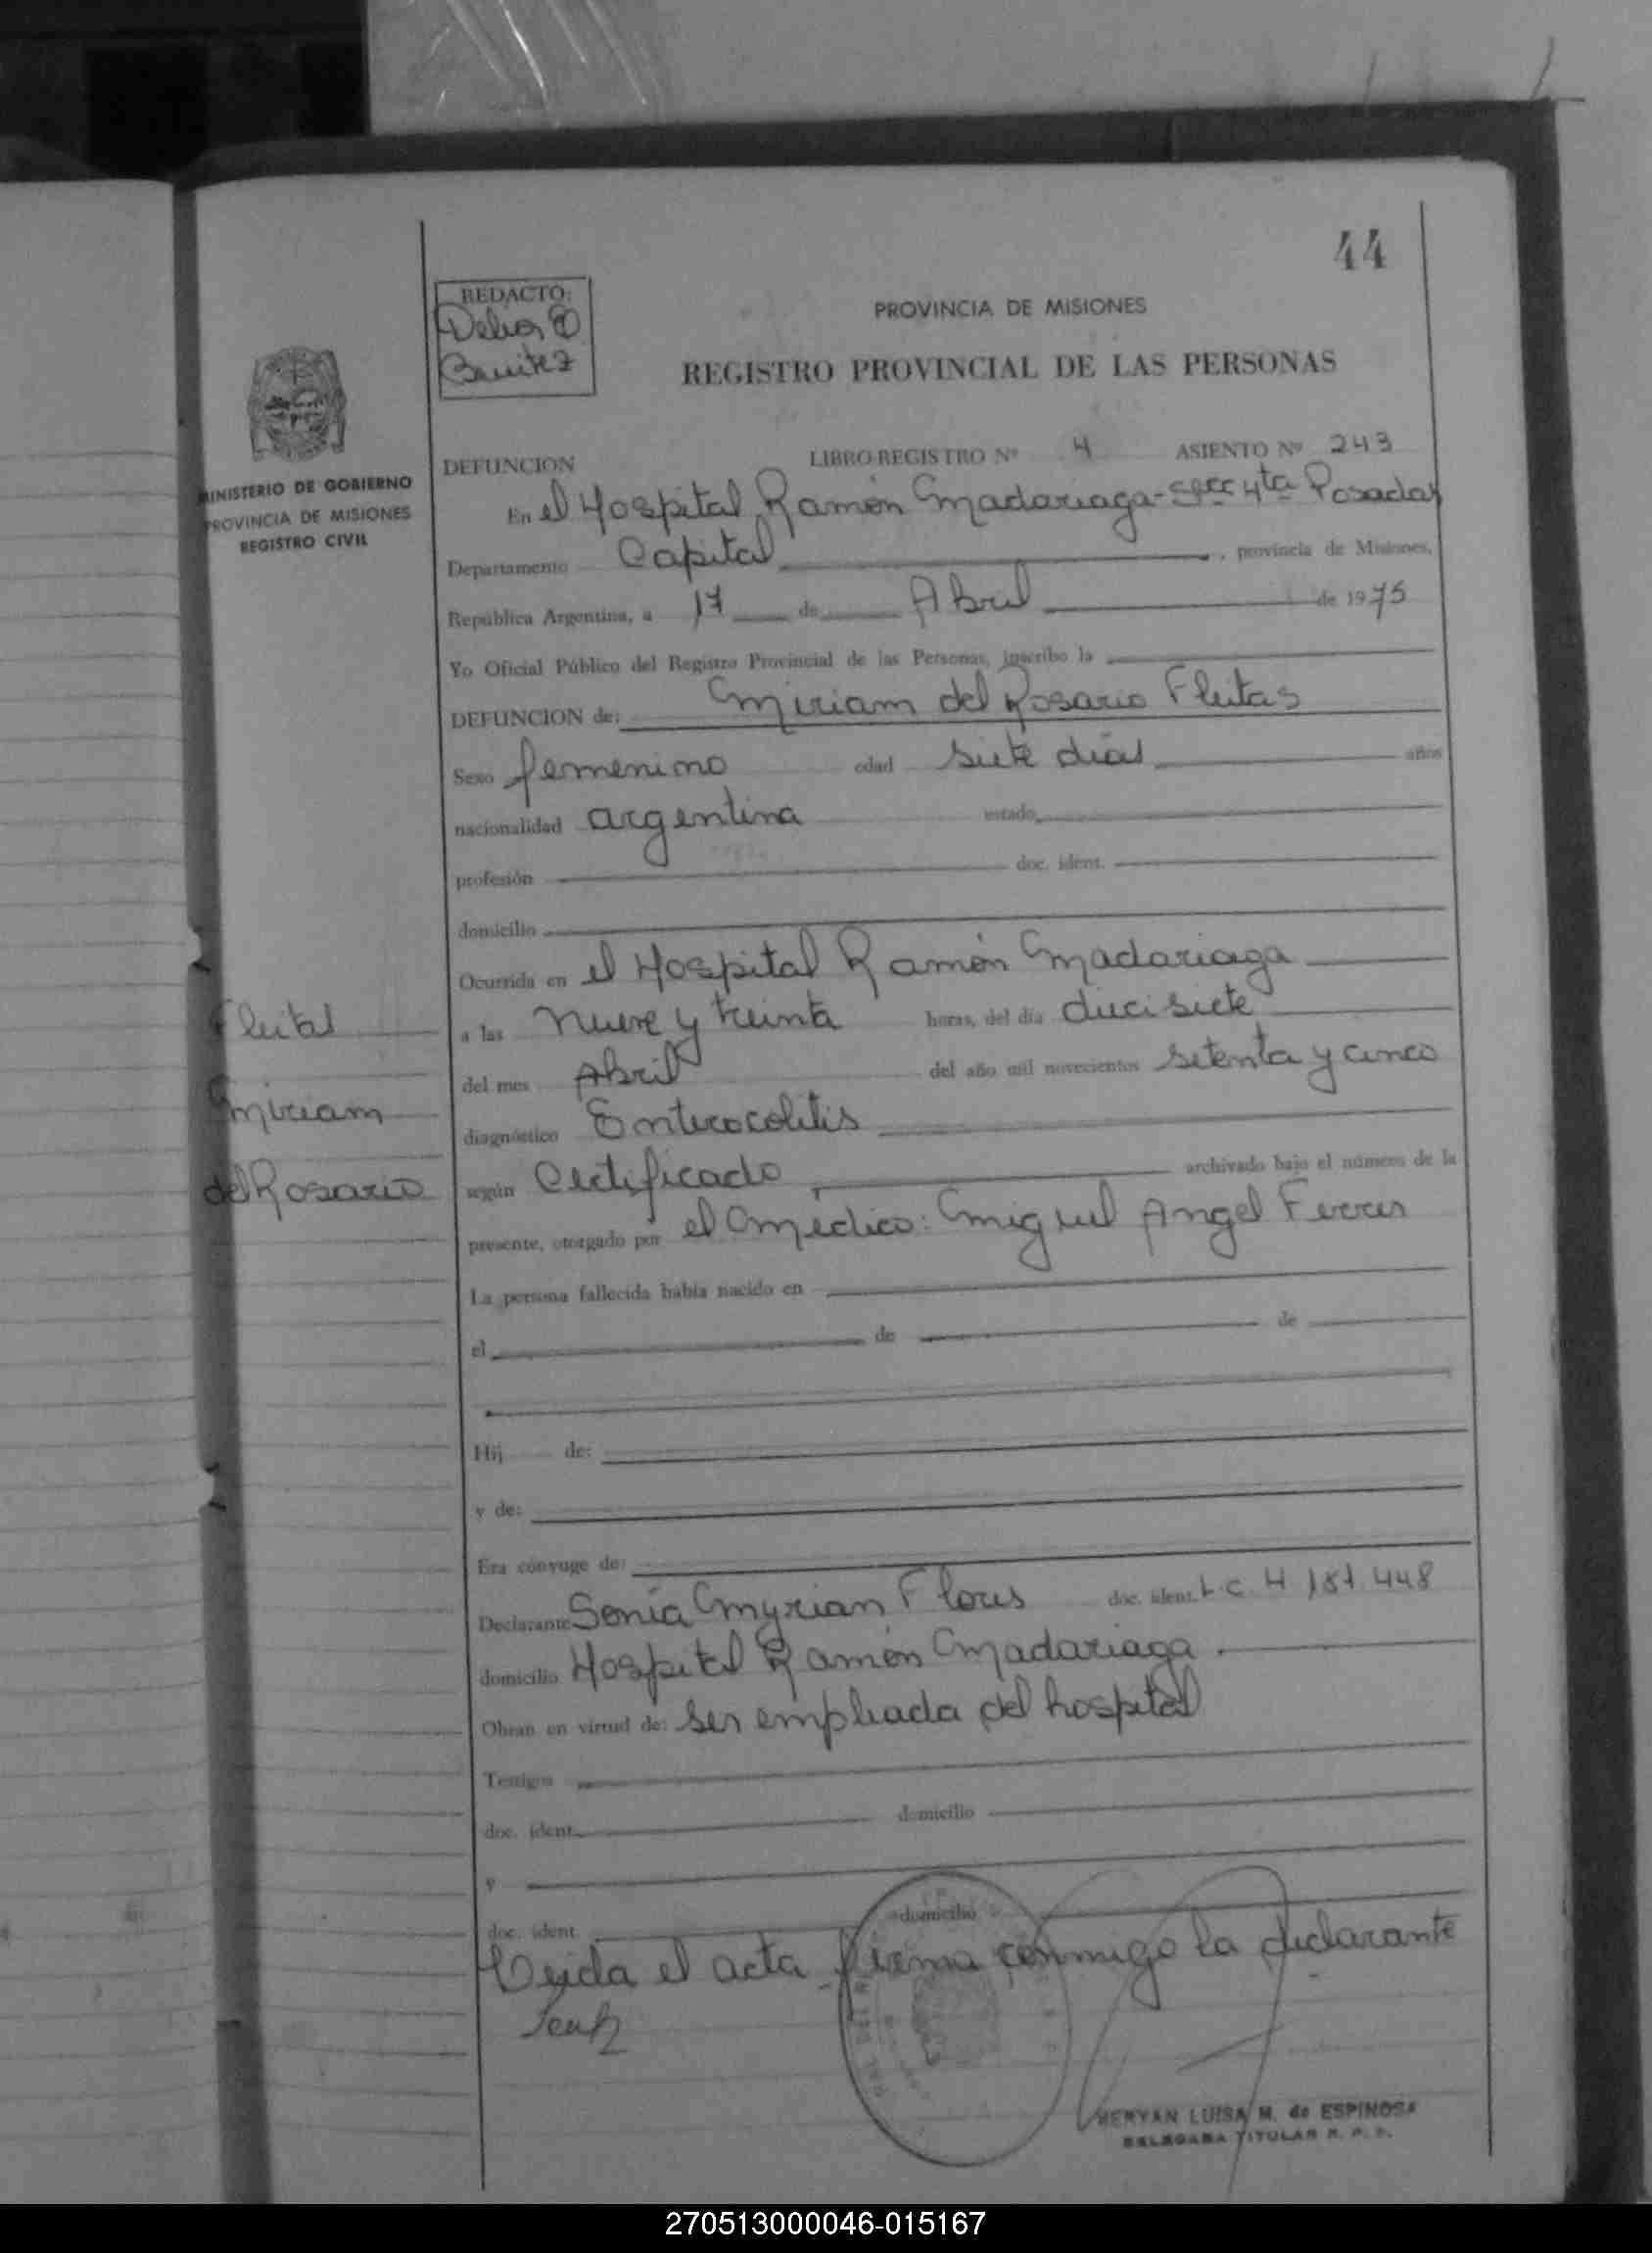 44
REDACTO:
Delia
Benitez
PROVINCIA DE MISIONES
REGISTRO PROVINCIAL DE LAS PERSONAS
MINISTERIO DE GOBIERNO
PROVINCIA DE MISIONES
REGISTRO CIVIL
DEFUNCION LIBRO-REGISTRO Nº 4 ASIENTO Nº 243
En el Hospital Ramón Madariaga-Secc 4ta Posadas
Departamento Capital, provincia de Misiones,
República Argentina, a 17 de Abril de 1975
Yo Oficial Público del Registro Provincial de las Personas, inscribo la
DEFUNCION de: Miriam del Rosario Fleitas
Sexo femenino edad siete días años
nacionalidad argentina estado
profesión doc. ident.
domicilio
Ocurrida en el Hospital Ramón Madariaga
a las nueve y treinta horas, del día diecisiete
del mes Abril del año mil novecientos setenta y cinco
diagnóstico Enterocolitis
según Certificado archivado bajo el número de la
presente, otorgado por el Médico: Miguel Angel Ferrer
La persona fallecida había nacido en
el de de
Hij de:
y de:
Era cónyuge de:
Declarante Sonia Myrian Flores doc. ident. L.C. 4 187 448
domicilio Hospital Ramón Madariaga.
Obran en virtud de: ser empleada del hospital
Testigos
doc. ident. domicilio
y
doc. ident. domicilio
Leida el acta firma conmigo la declarante
Fleitas
Miriam
del Rosario
MERYAN LUISA M. de ESPINOSA
DELEGADA TITULAR R. P. P.
270513000046-015167